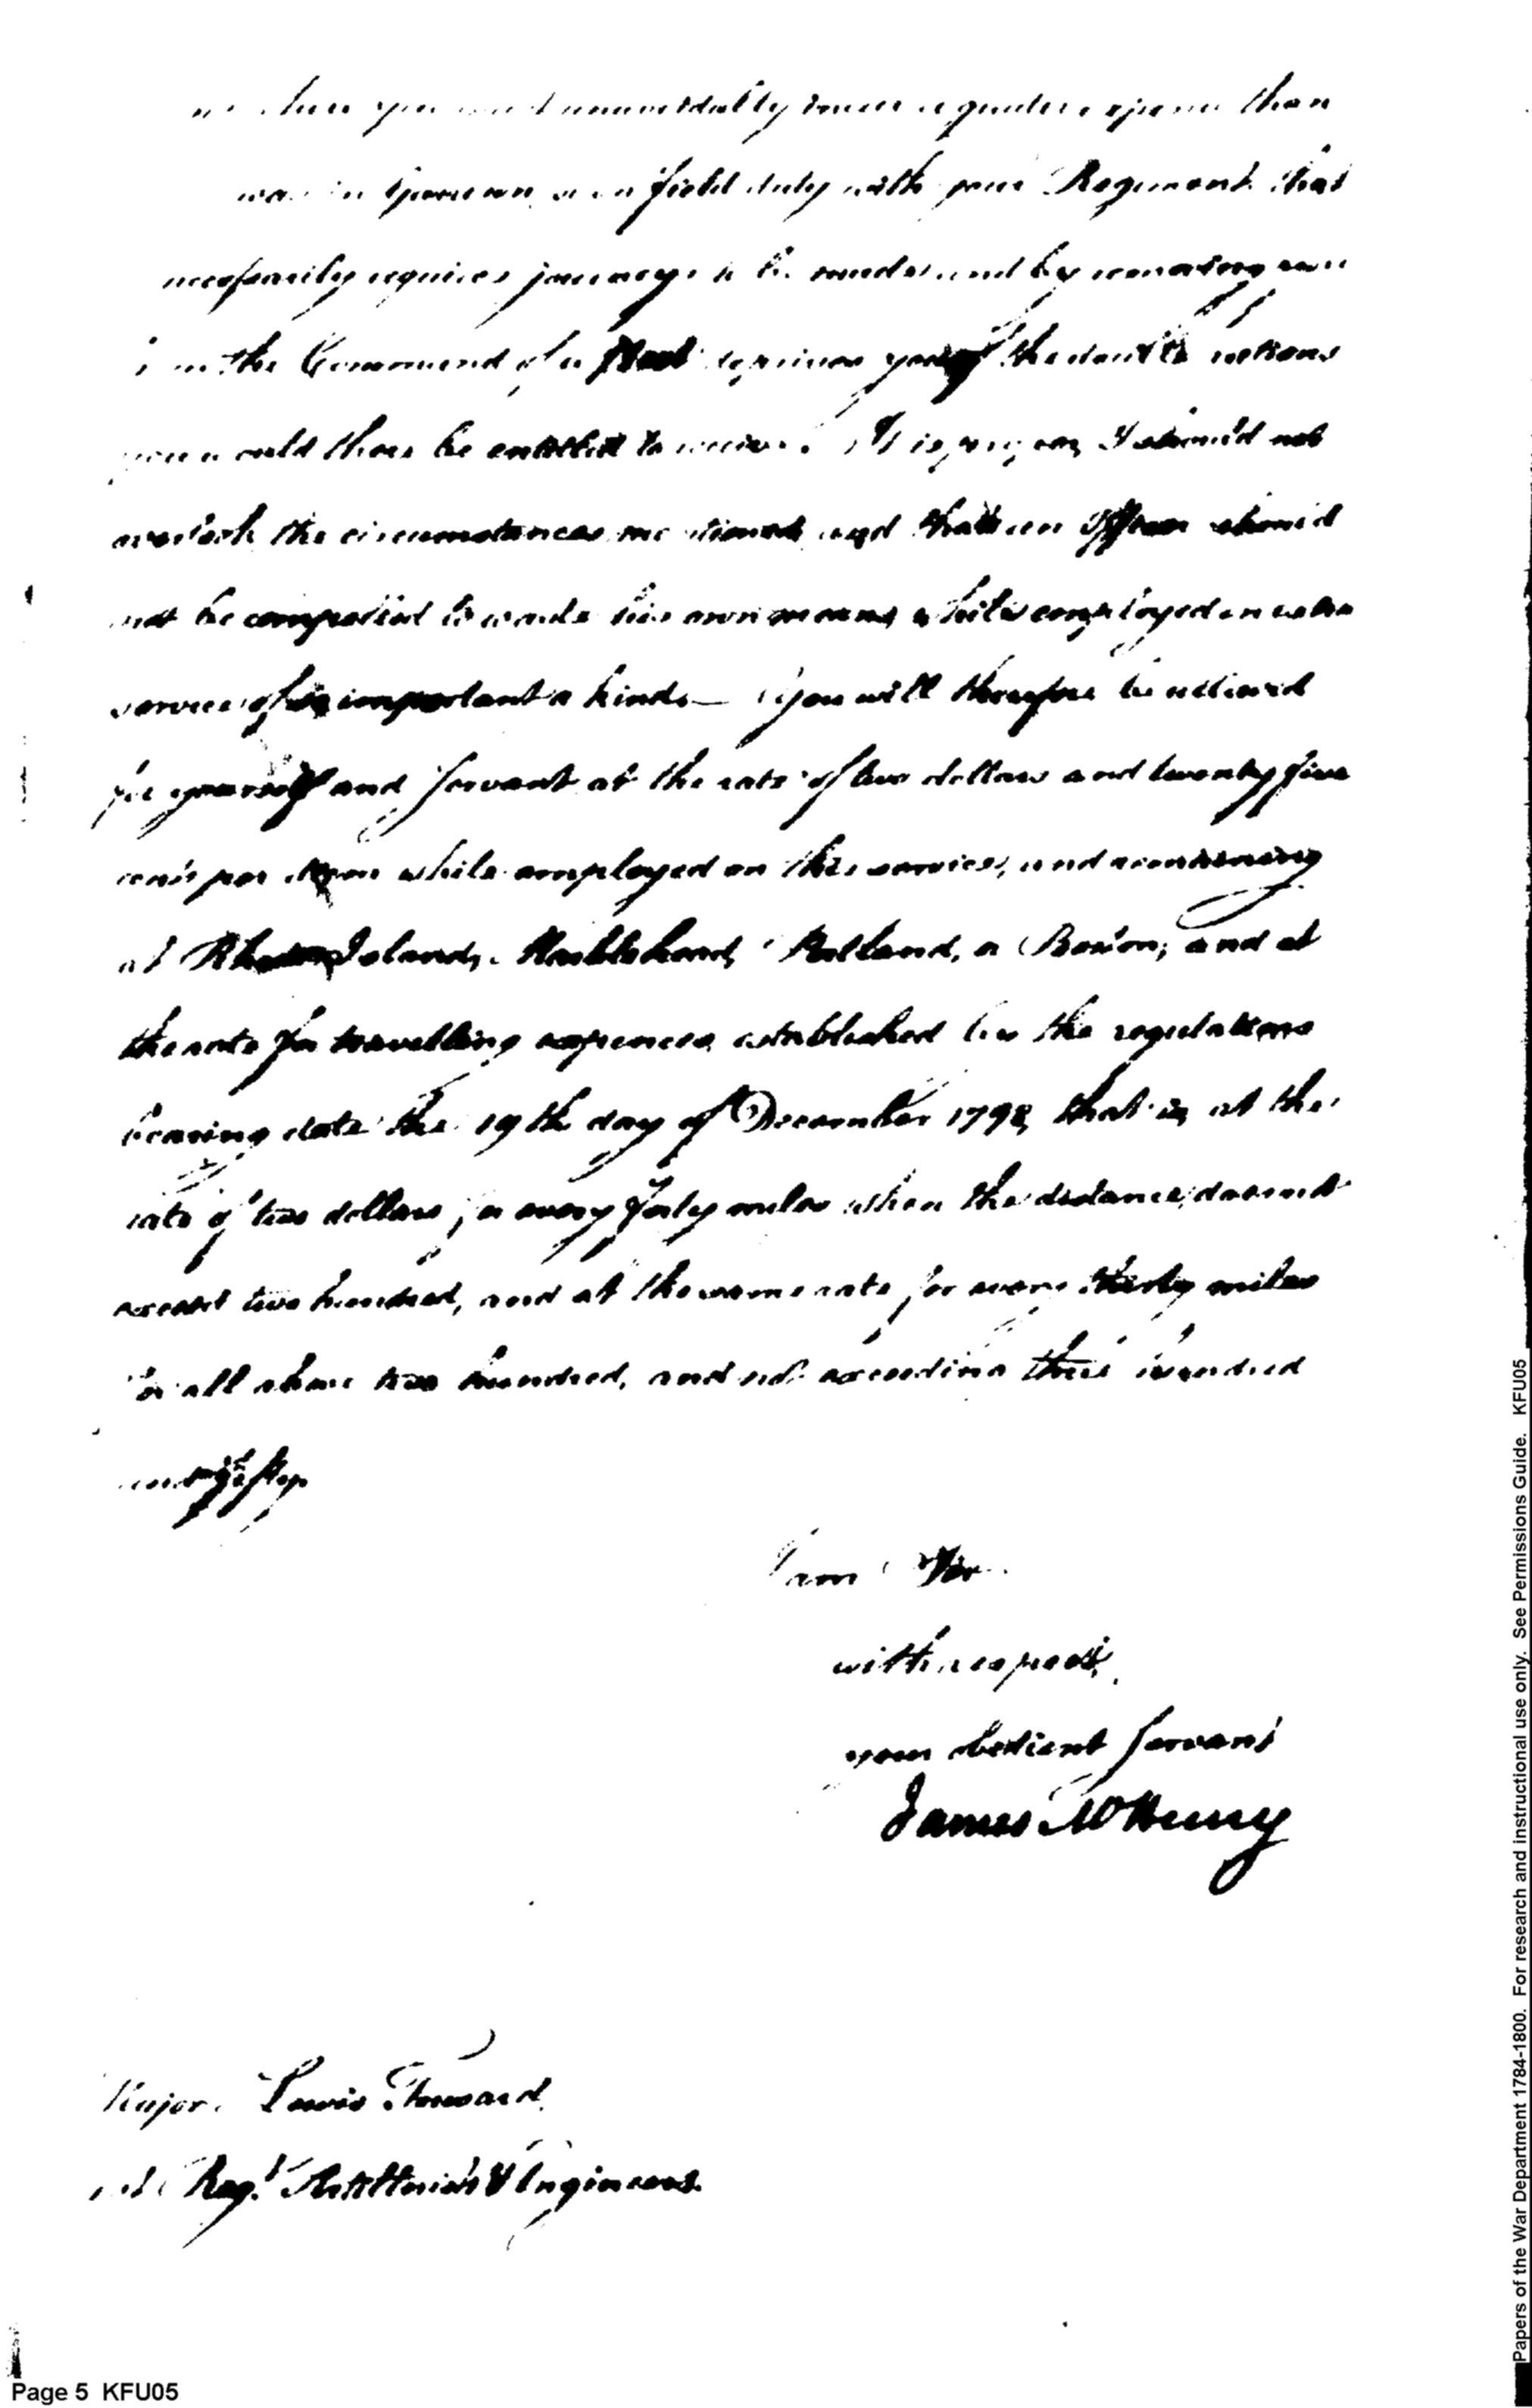 you unavoidably incur a greater expense than
in Garrison or on field duty with your Regiment that
necessarily requires journeys to be made, and by removing you
from the Command of a Post deprives you of the double rations
you would there be entitled to receive. It is proper, I should not
overlook the circumstances mentioned and that an Officer should
not be compelled to waste his own means while employed on extra
services of so important a kind — You will therefore be allowed
for yourself and servant at the rate of two dollars and twenty five
cents per diem while employed on this service, and remaining
at Rhode Island, Marblehead, Portland, or Boston; and at
the rate for travelling expences established by the regulations
bearing date the 19th day of December 1798, that is, at the
rate of two dollars for every forty miles when the distance does not
exceed two hundred, and at the same rate for every thirty miles
for all above two hundred, and not exceeding three hundred
and fifty
I am Sir
with respect,
your obedient servant
James McHenry
Major Lewis Tousard
Regt. Artillerists & Engineers.
Papers of the War Department 1784-1800. For research and instructional use only. See Permissions Guide. KFU05
Page 5 KFU05